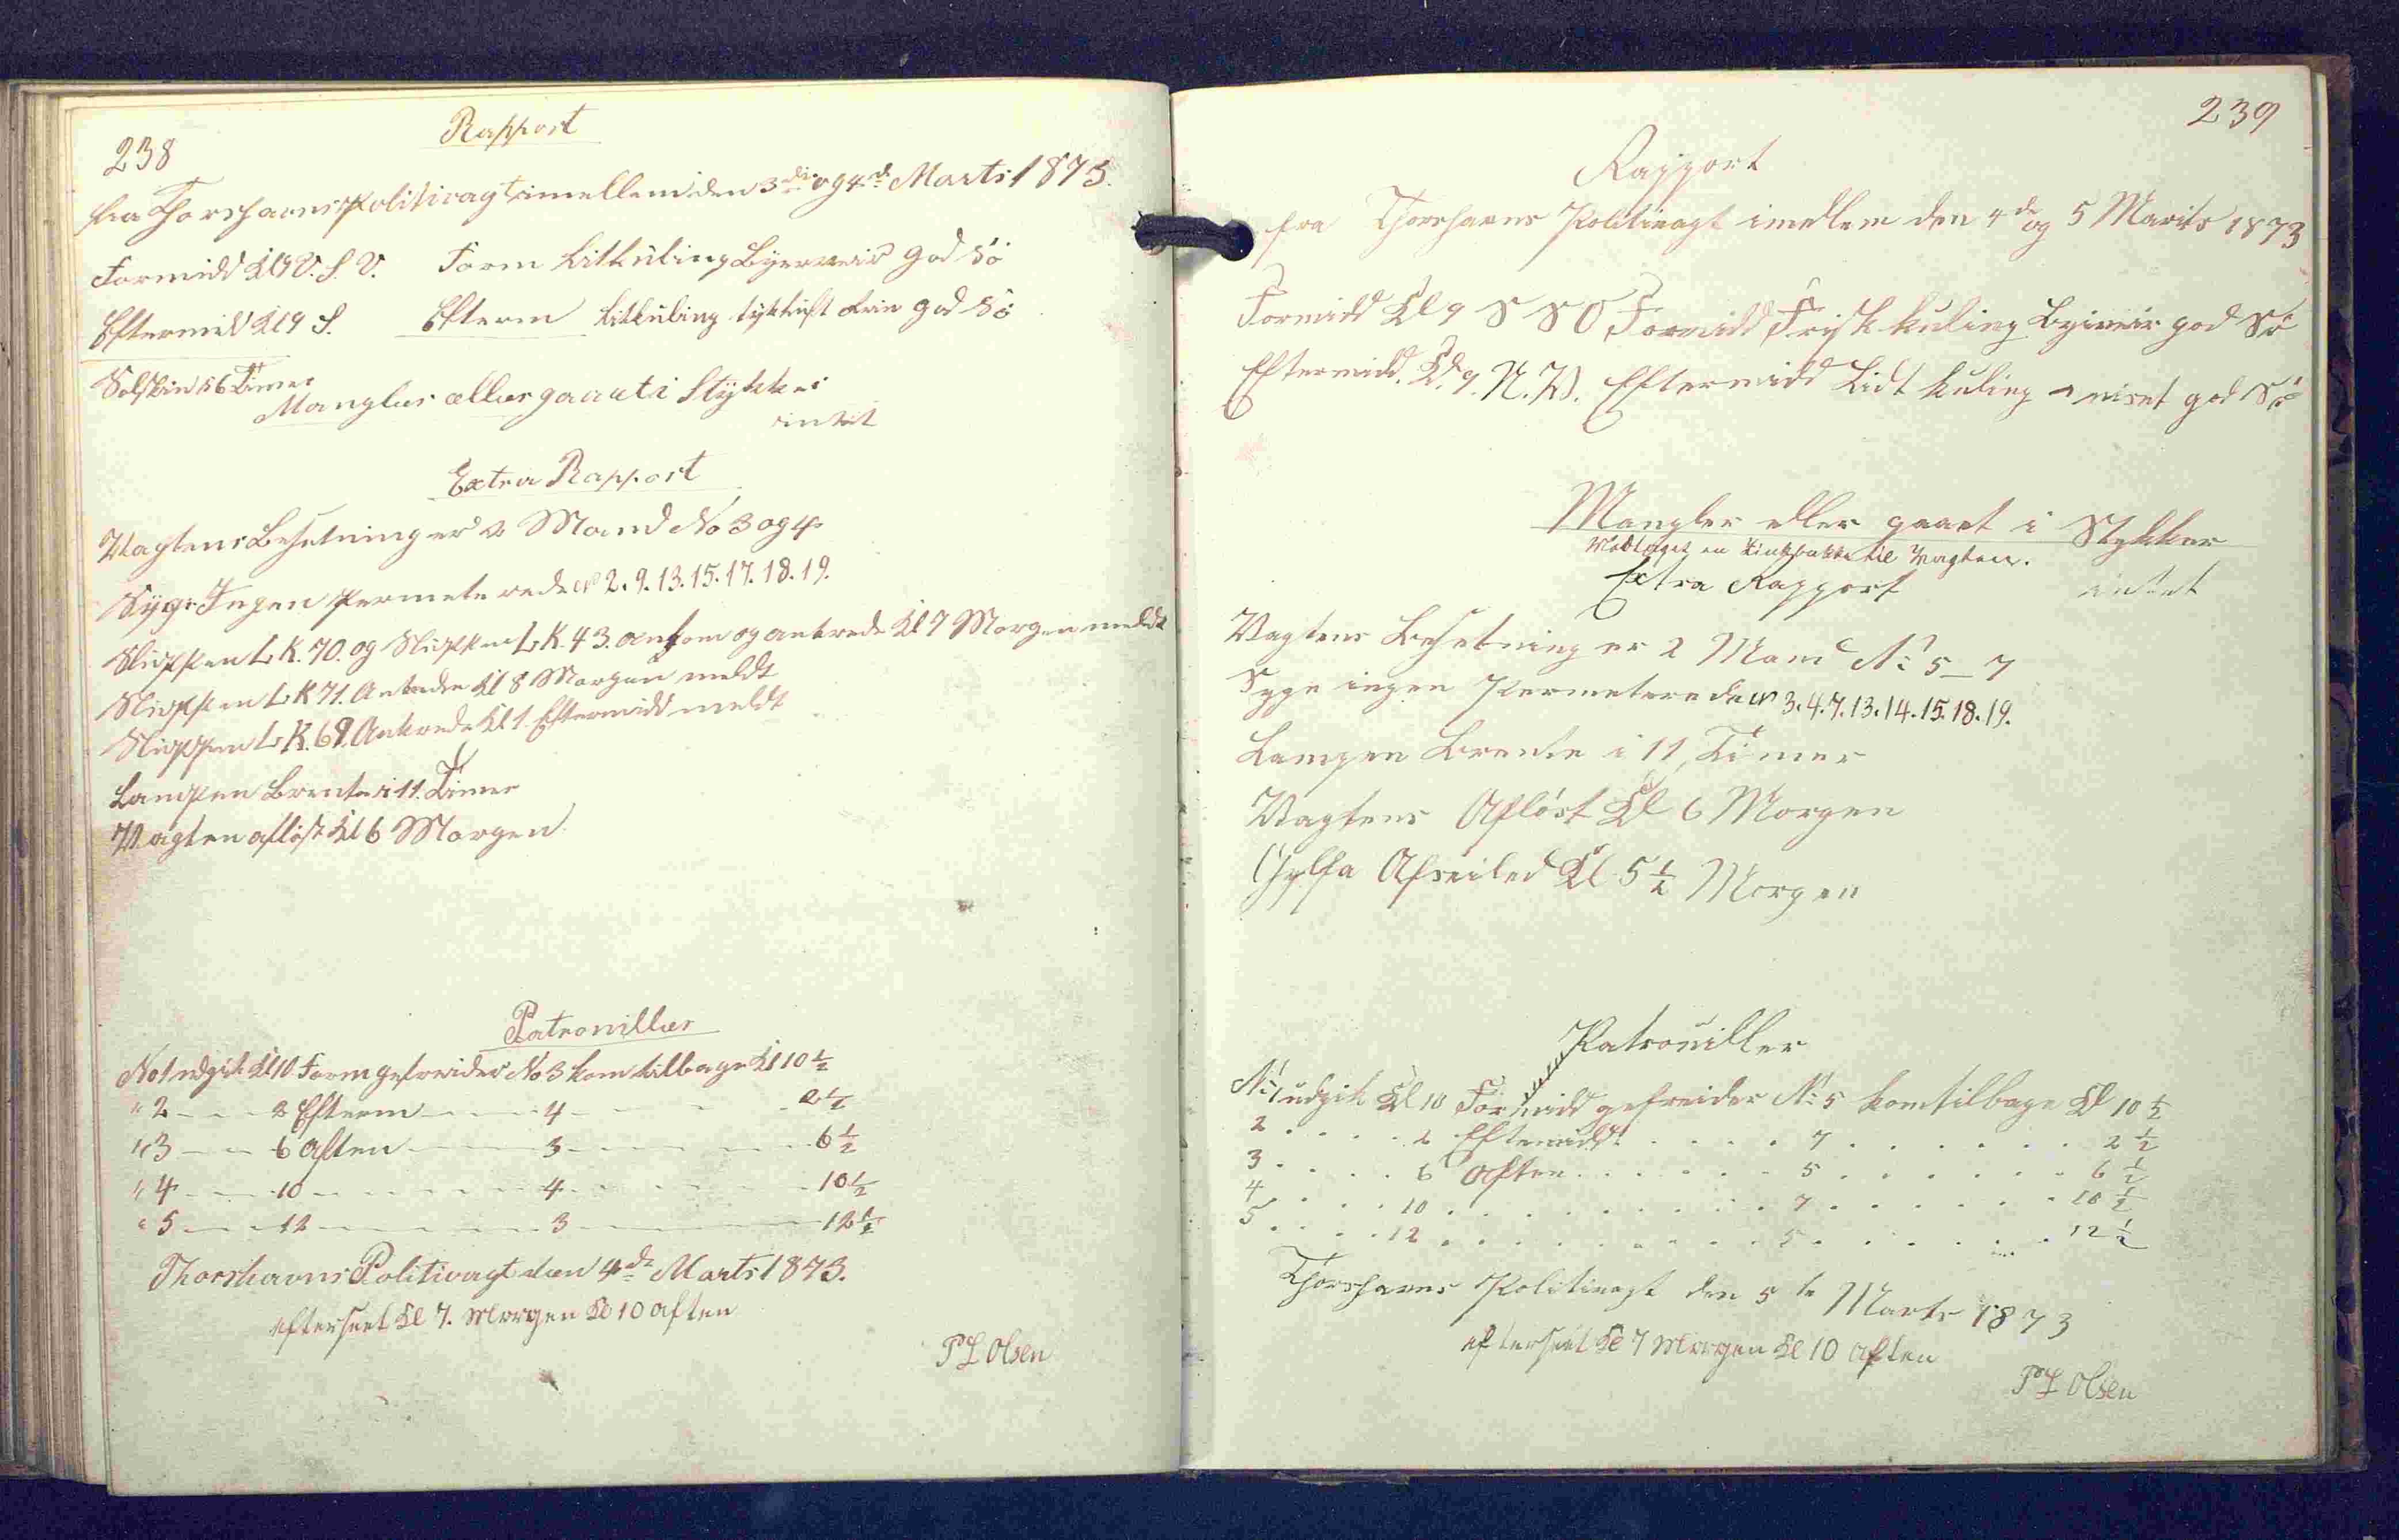 238
Rapport
fra Thorshavns Politivagt imellem den 3die og 4de Marts 1873.
Formidd Kl 9 V. S. V. Form Litkuling Byerveir god Sö
Eftermid Kl 9 S. Efterm Litkuling tykluft god Sö
Solskin Timer
Mangler æller gaaet i Stykker
intet
Extra Rapport
Vagtens Besetning er 2 Mand No 3 og 4
Syge Ingen Permeterede No 2. 9. 13. 15. 17. 18. 19.
Sluppen L K. 70. og Sluppen L K. 43. ankom og ankrede Kl 7 Morgen meldt
Sluppen L K 71. Ankrede Kl 8 Morgen meldt
Sluppen L K. 69. Ankrede Kl 1 Eftermidd meldt
Lampen Brente i 11. Timer
Vagten aflöst Kl 6 Morgen
Patrouiller
No 1 udgik Kl 10 Form gefreider No 3 kom tilbage Kl 10 1/2
" 2 - - 2 Efterm - - 4 - - 2 1/2
" 3 - - 6 Aften - - 3 - - 6 1/2
" 4 - - 10 - - 4 - - 10 1/2
" 5 - - 12 - - 3 - - 12 1/2
Thorshavns Politivagt den 4de Marts 1873.
efterseet Kl 7. Morgen Kl 10 Aften
P L Olsen
239
Rapport
fra Thorshavns Politivagt imellem den 4de og 5 Marts 1873
Formidd Kl 9 S S O Formidd Frisk kuling Byiveir god Sö
Eftermidd. Kl. 9. N. W. Eftermidd Lidt kuling god Sö
Mangler eller gaaet i Stykker
Modtaget en til Vagten.
Extra Rapport intet
Vagtens Besetning er 2 Mand No 5 - 7
Syge ingen Permeterede No 3. 4. 7. 13. 14. 15. 18. 19.
Lampen Brente i 11, Timer
Vagtens Aflöst Kl 6 Morgen
Gylfa Afseiled Kl 5 1/2 Morgen
Patrouiller
No 1 udgik Kl 10 Formidd gefreider No 5 kom tilbage Kl 10 1/2
2 . . . . 2 Eftermidd . . . . 7 . . . . 2 1/2
3 . . . . 6 Aften . . . . 5 . . . . 6 1/2
4 . . . . 10 . . . . 7 . . . . 10 1/2
5 . . . . 12 . . . . 5 . . . . 12 1/2
Thorshavns Politivagt den 5te Marts 1873
efterseet Kl 7 Morgen Kl 10 Aften
P L Olsen